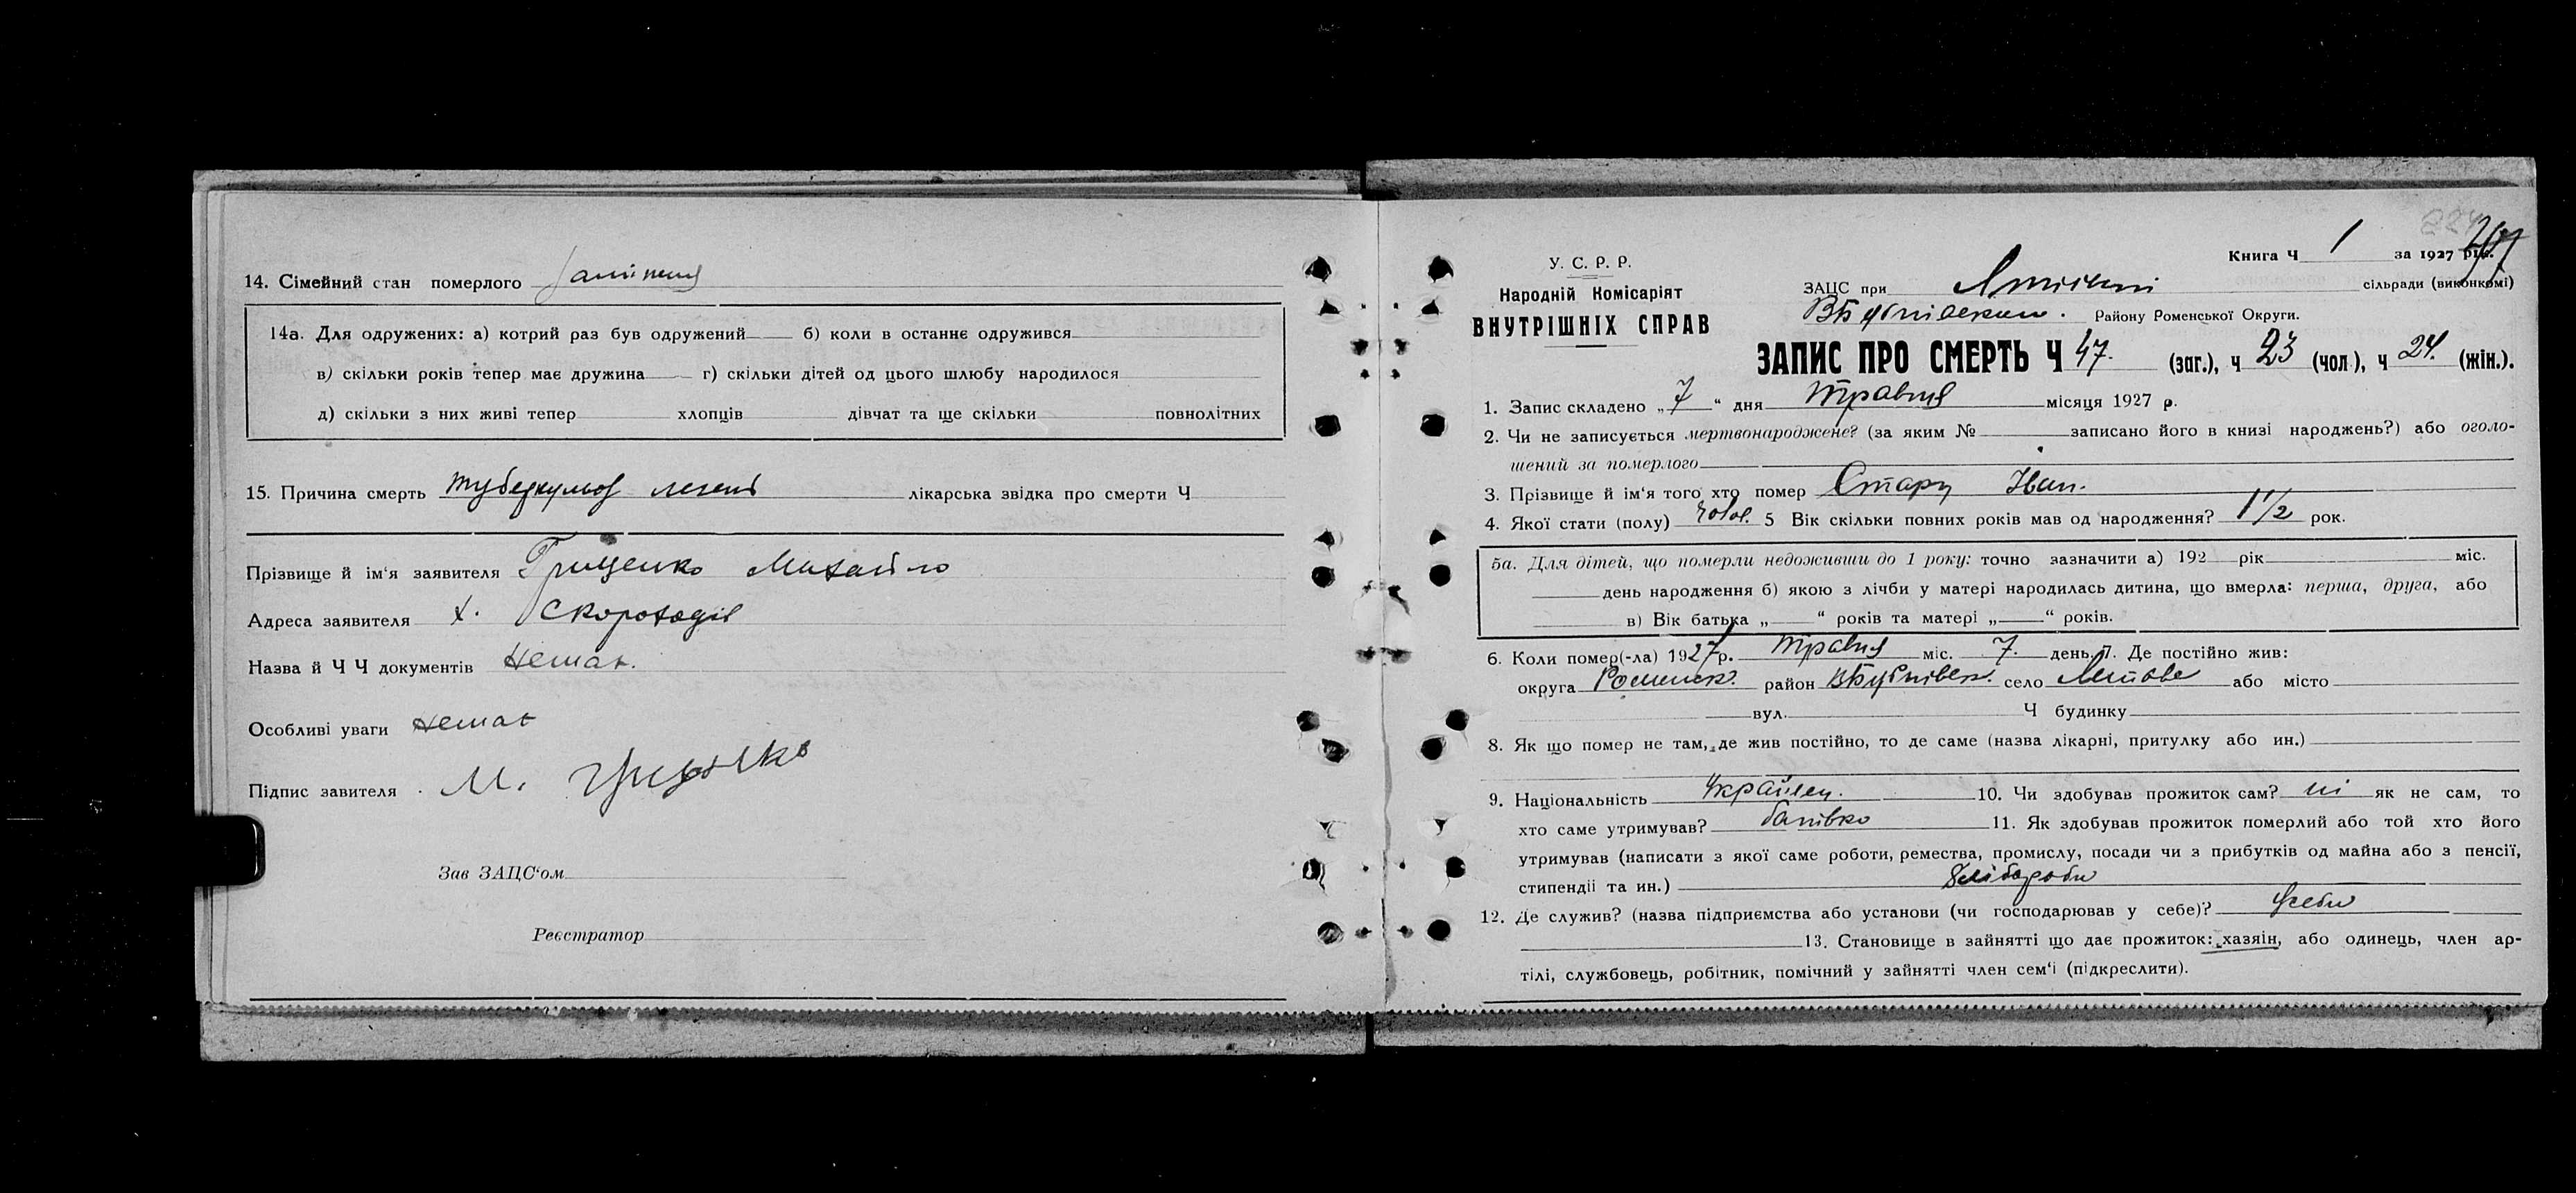 14. Сімейний стан померлого
14а. Для одружених: а) котрий раз був одружений б) коли в останнє одружився
в) скільки років тепер має дружина г) скільки дітей од цього шлюбу народилося
д) скільки з них живі тепер хлопців дівчат та ще скільки повнолітних
15. Причина смерть туберкульоз легень лікарська звідка про смерти Ч
Прізвище й ім'я заявителя Грищенко Михайло
Адреса заявителя х. Скороходів
Назва й Ч Ч документів Немає.
Особливі уваги Немає
Підпис завителя М. Грищенко
Зав ЗАЦС'ом
Реєстратор
Книга Ч 1 за 1927 рік.
У. С. Р. Р.
Народній Комісаріят
ВНУТРІШНІХ СПРАВ
ЗАЦС при сільради (виконкомі)
Району Роменської Округи.
ЗАПИС ПРО СМЕРТЬ Ч 47. (заг.), ч 23 (чол.), ч 24. (жін.).
1. Запис складено „7“ дня травня місяця 1927 р.
2. Чи не записується мертвонароджене? (за яким № записано його в книзі народжень?) або оголо-
шений за померлого
3. Прізвище й ім'я того хто помер Іван.
4. Якої стати (полу) чолов. 5 Вік скільки повних років мав од народження? 1 1/2 рок.
5а. Для дітей, що померли недоживши до 1 року: точно зазначити а) 192 рік міс.
день народження б) якою з лічби у матері народилась дитина, що вмерла: перша, друга, або
в) Вік батька „ “ років та матері „ “ років.
6. Коли помер(-ла) 1927 р. травня міс. 7. день 7. Де постійно жив:
округа Роменск. район село або місто
вул. Ч будинку
8. Як що помер не там, де жив постійно, то де саме (назва лікарні, притулку або ин.)
9. Національність Україней. 10. Чи здобував прожиток сам? ні як не сам, то
хто саме утримував? батько 11. Як здобував прожиток померлий або той хто його
утримував (написати з якої саме роботи, ремества, промислу, посади чи з прибутків од майна або з пенсії,
стипендії та ин.) хлібороби
12. Де служив? (назва підприємства або установи (чи господарював у себе)? у себе
13. Становище в зайнятті що дає прожиток: хазяїн, або одинець, член ар-
тілі, службовець, робітник, помічний у зайнятті член сем'ї (підкреслити).